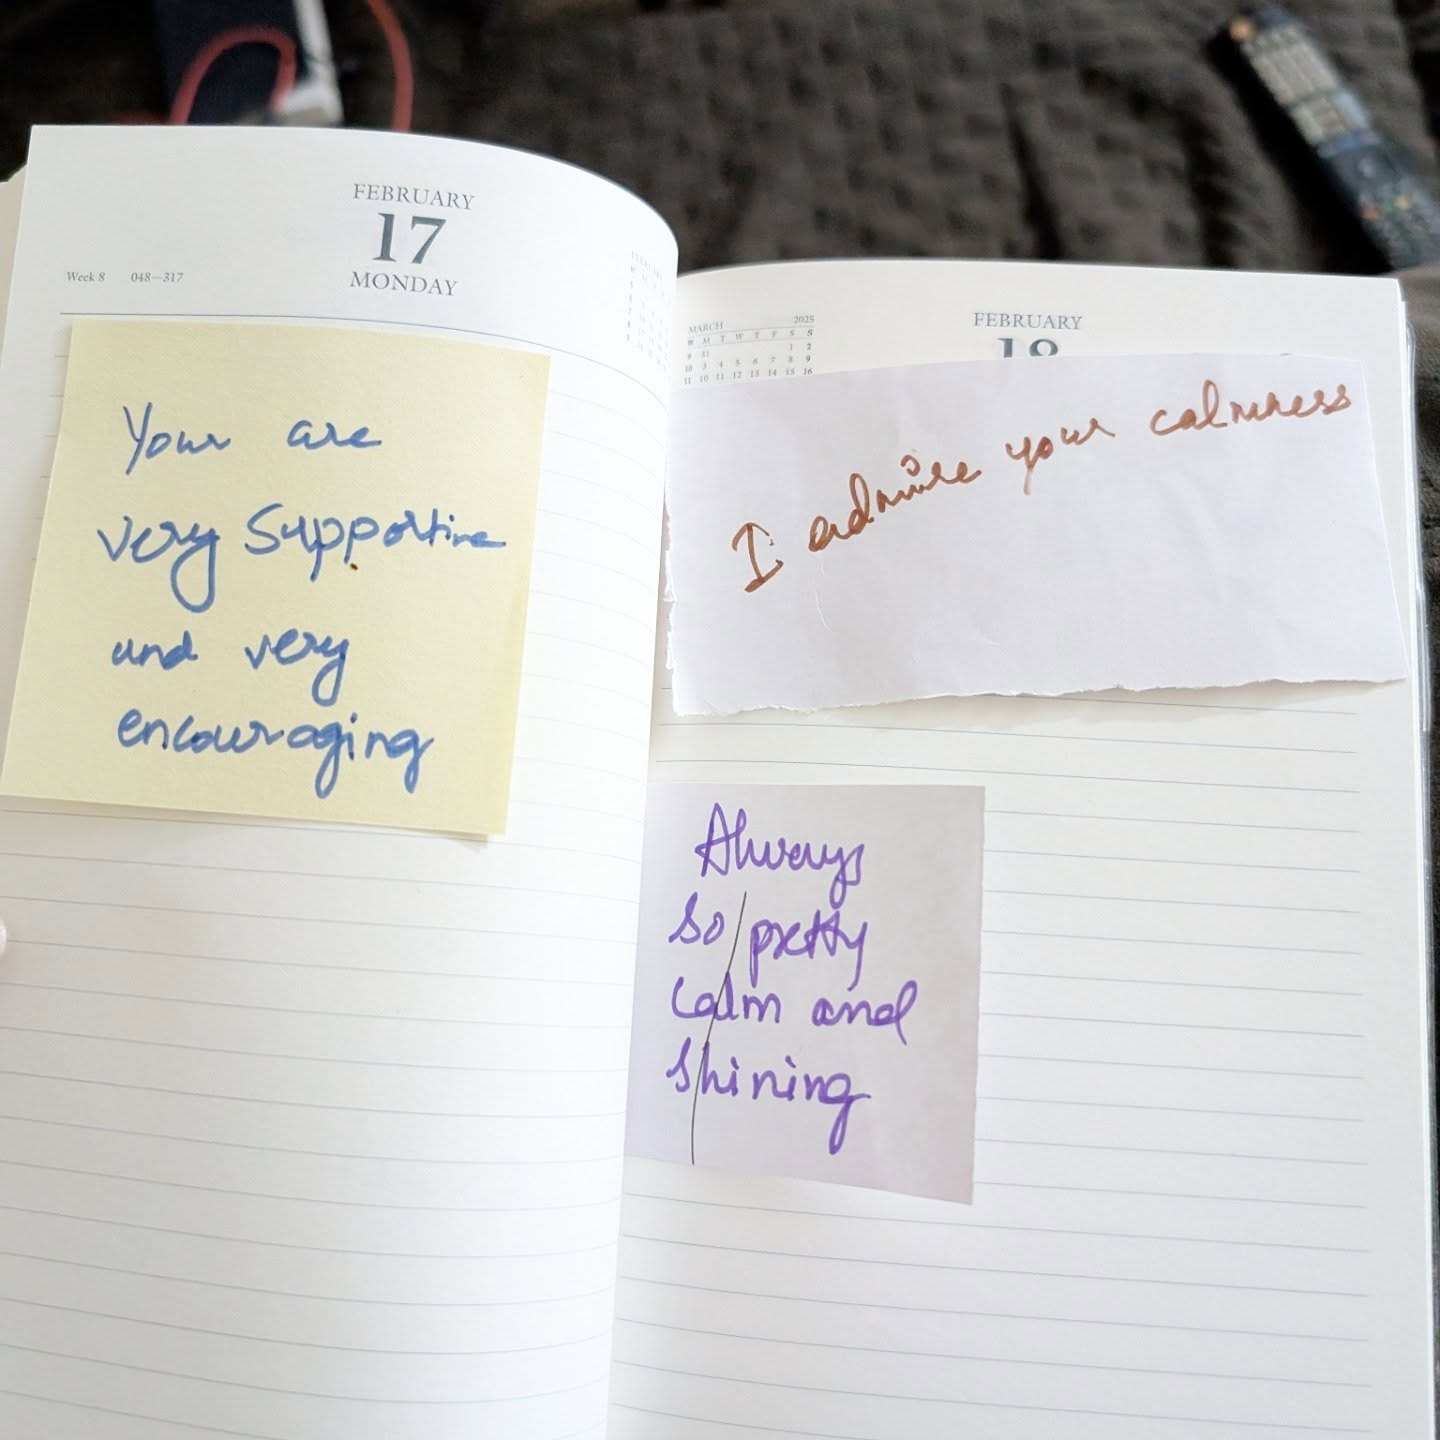 FEBRUARY
17
MONDAY
Week 8 048—317
Your are
very supportive
and very
encouraging
MARCH 2025
W M T W T F S S
9 31 1 2
10 3 4 5 6 7 8 9
11 10 11 12 13 14 15 16
FEBRUARY
18
I admire your calmness
Always
so pretty
calm and
shining